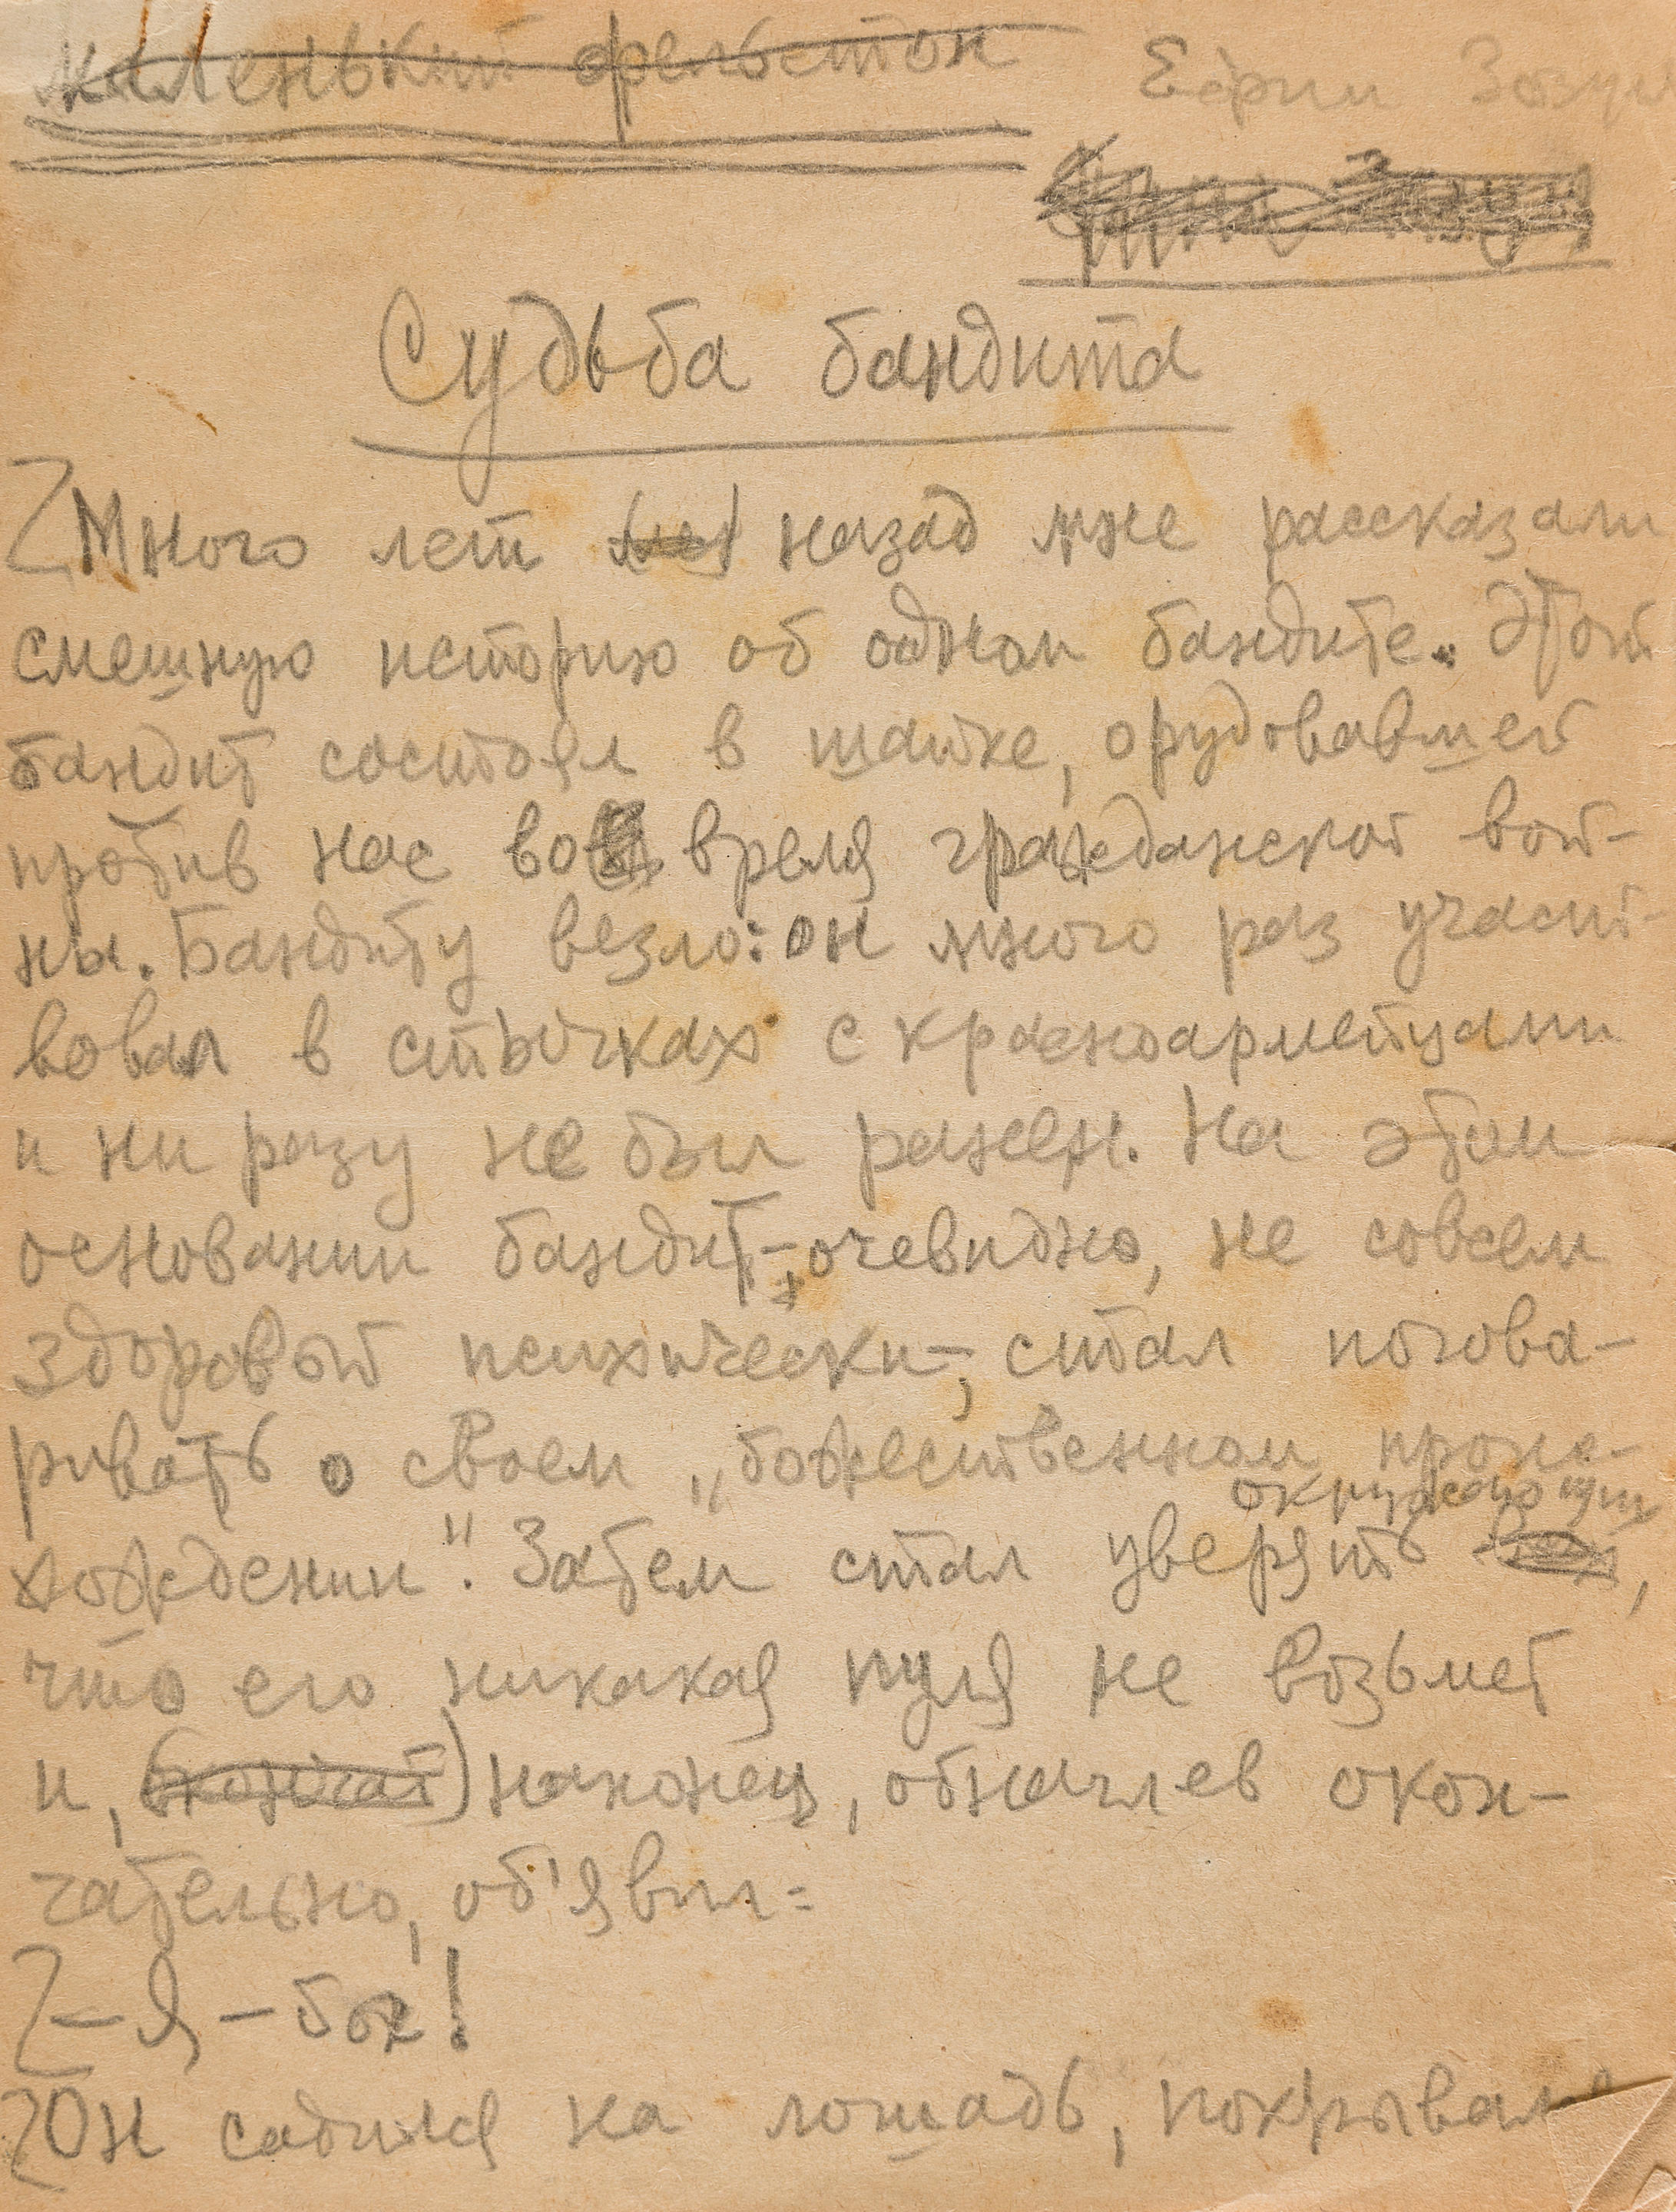 Маленький фельетон
Ефим Зозуля
Судьба бандита
Много лет назад мне рассказали
смешную историю об одном бандите. Этот
бандит состоял в шайке, орудовавшей
против нас во время гражданской вой-
ны. Бандиту везло: он много раз участ-
вовал в стычках с красноармейцами
и ни разу не был ранен. На этом
основании бандит, – очевидно, не совсем
здоровый психически –, стал погова-
ривать о своем „божественном проис-
хождении". Затем стал уверять окружающих,
что его никакая пуля не возьмет
и, (кончат) наконец, обнаглев окон-
чательно, об'явил:
– Я – бог!
Он садился на лошадь, покрывал